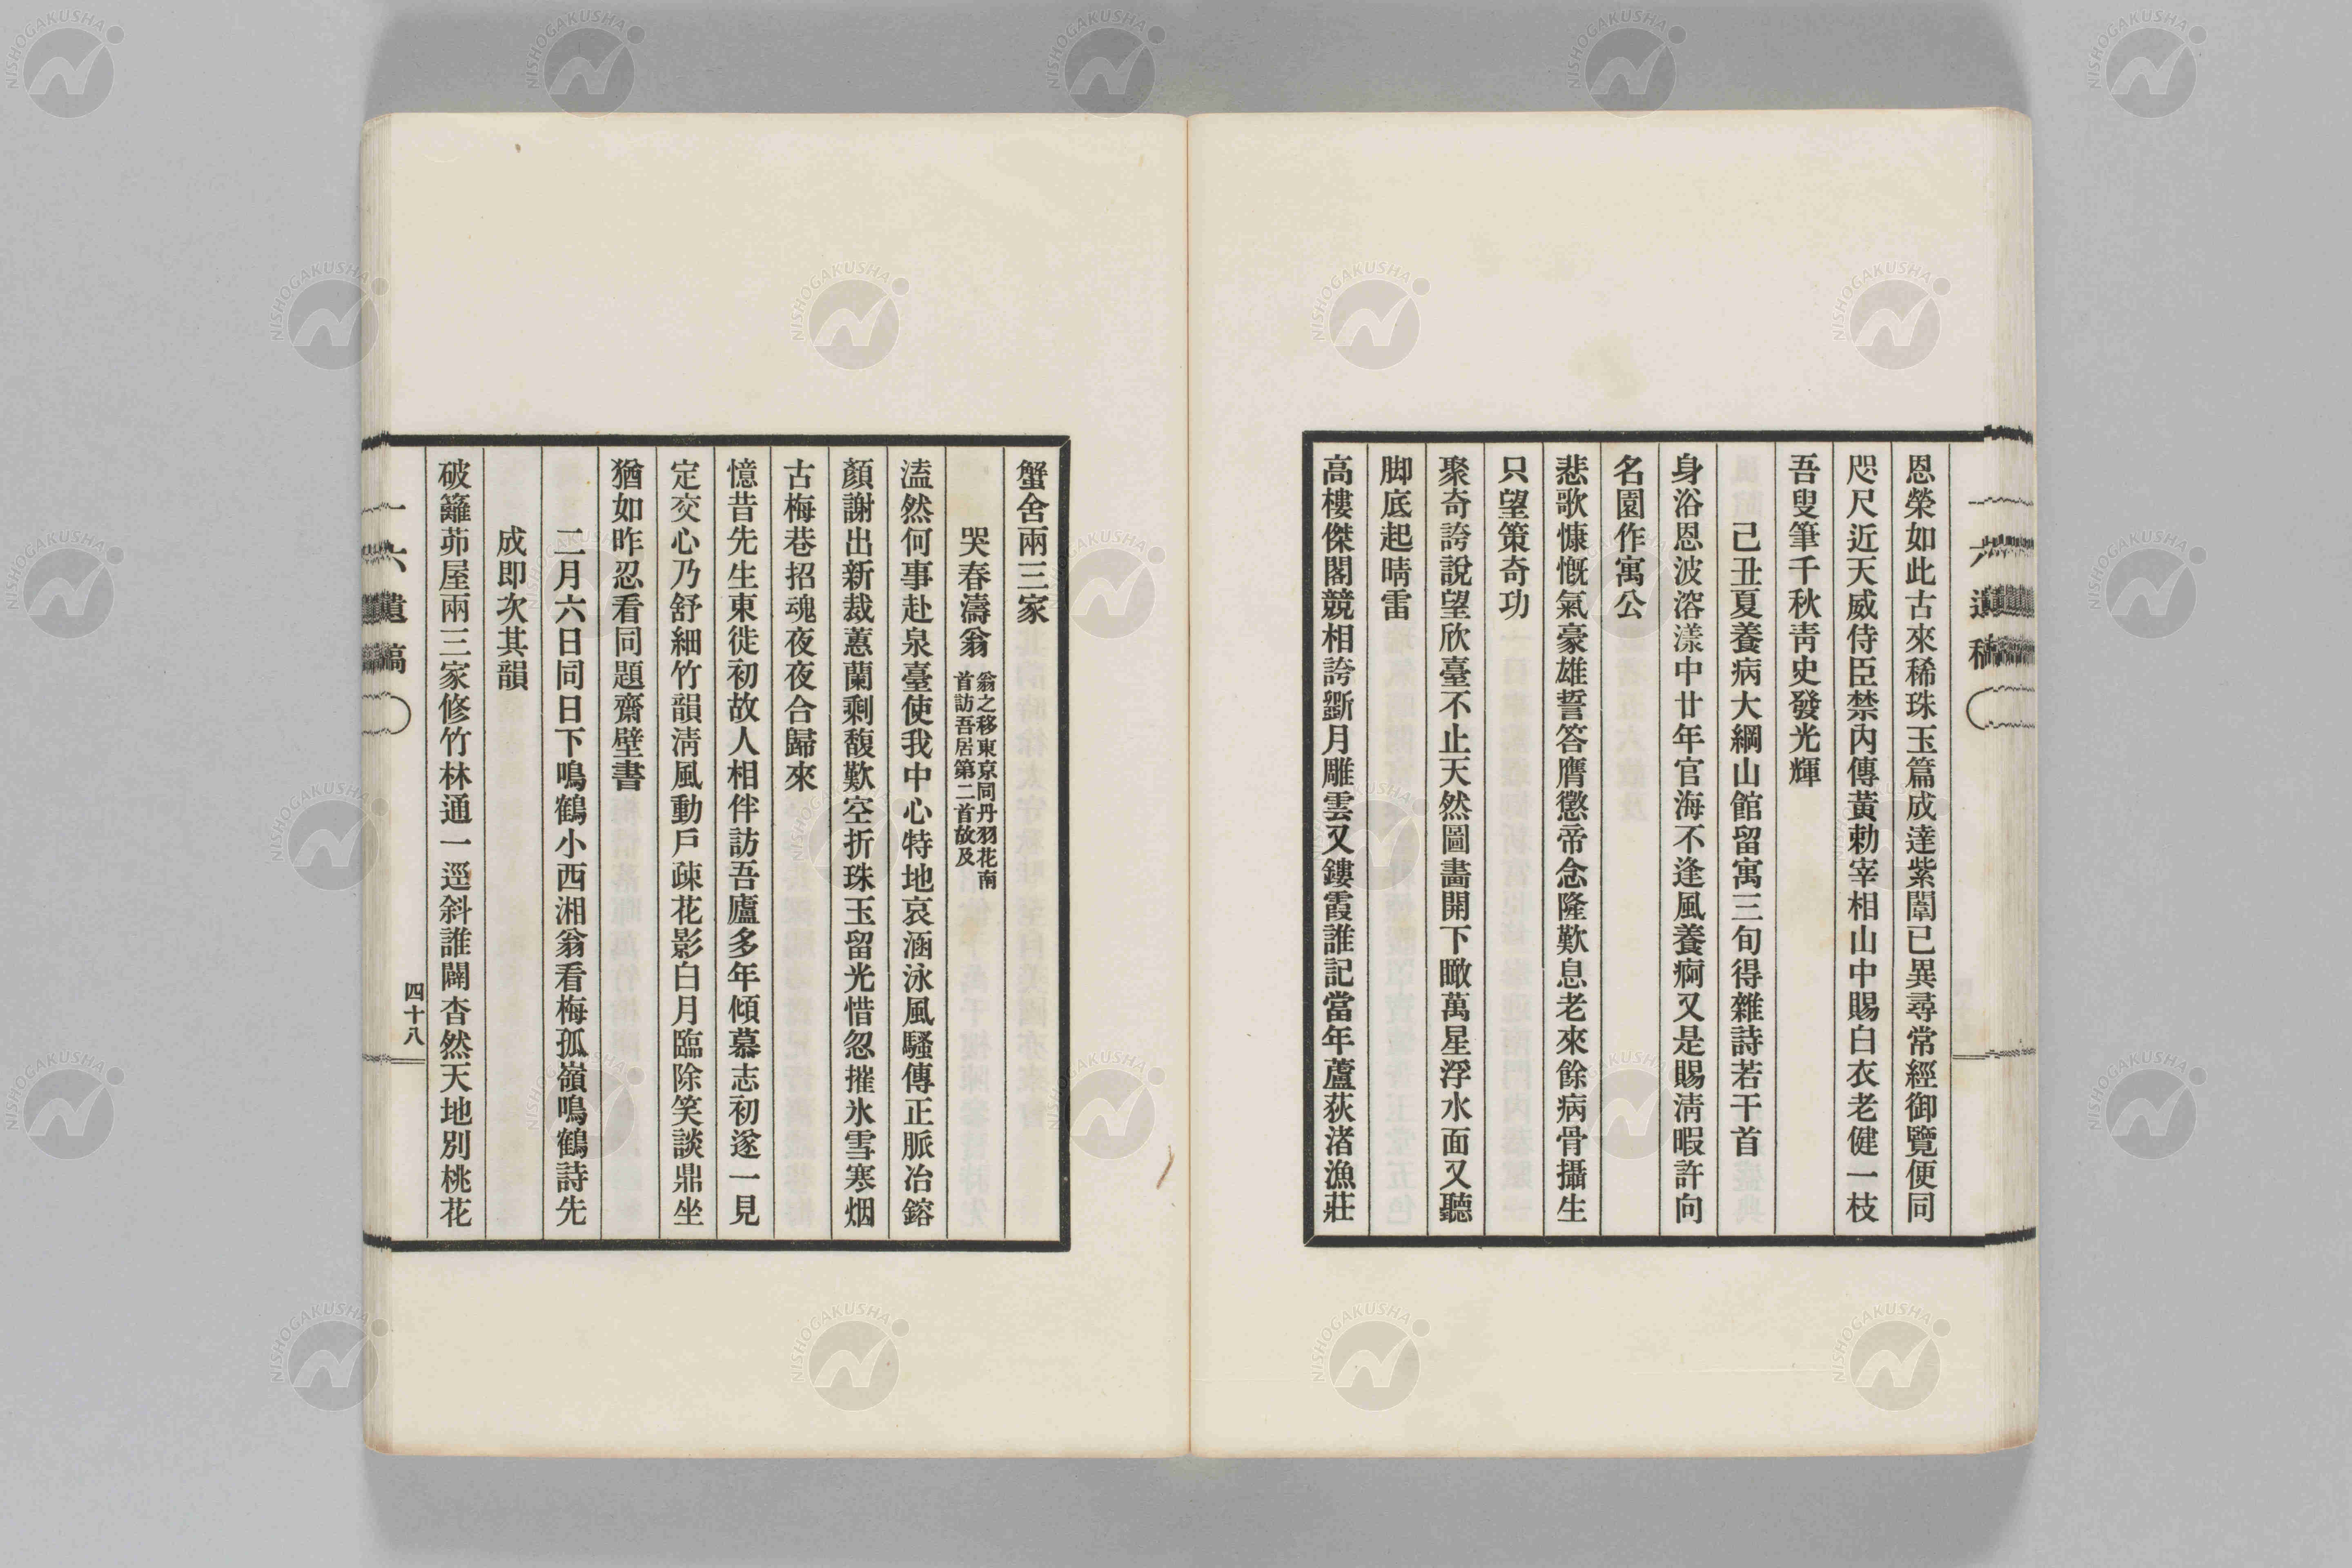 一六遺稿
恩榮如此古來稀珠玉篇成達紫闈已異尋常經御覽便同
咫尺近天威侍臣禁內傳黃勅宰相山中賜白衣老健一枝
吾叟筆千秋靑史發光輝
己丑夏養病大綱山館留寓三旬得雜詩若干首
身浴恩波溶漾中廿年官海不逢風養痾又是賜淸暇許向
名園作寓公
悲歌慷慨氣豪雄誓答膺懲帝念隆歎息老來餘病骨攝生
只望策奇功
聚奇誇說望欣臺不止天然圖畵開下瞰萬星浮水面又聽
脚底起晴雷
高樓傑閣競相誇斵月雕雲又鏤霞誰記當年蘆荻渚漁莊
蟹舍兩三家
哭春濤翁 翁之移東京同丹羽花南
首訪吾居第二首故及
溘然何事赴泉臺使我中心特地哀涵泳風騷傳正脈冶鎔
顏謝出新裁蕙蘭剩馥歎空折珠玉留光惜忽摧氷雪寒烟
古梅巷招魂夜夜合歸來
憶昔先生東徙初故人相伴訪吾廬多年傾慕志初遂一見
定交心乃舒細竹韻淸風動戶疎花影白月臨除笑談鼎坐
猶如昨忍看同題齋壁書
二月六日同日下鳴鶴小西湘翁看梅孤嶺鳴鶴詩先
成即次其韻
破籬茆屋兩三家修竹林通一逕斜誰闢杳然天地別桃花
一六遺稿
四十八
NISHOGAKUSHA